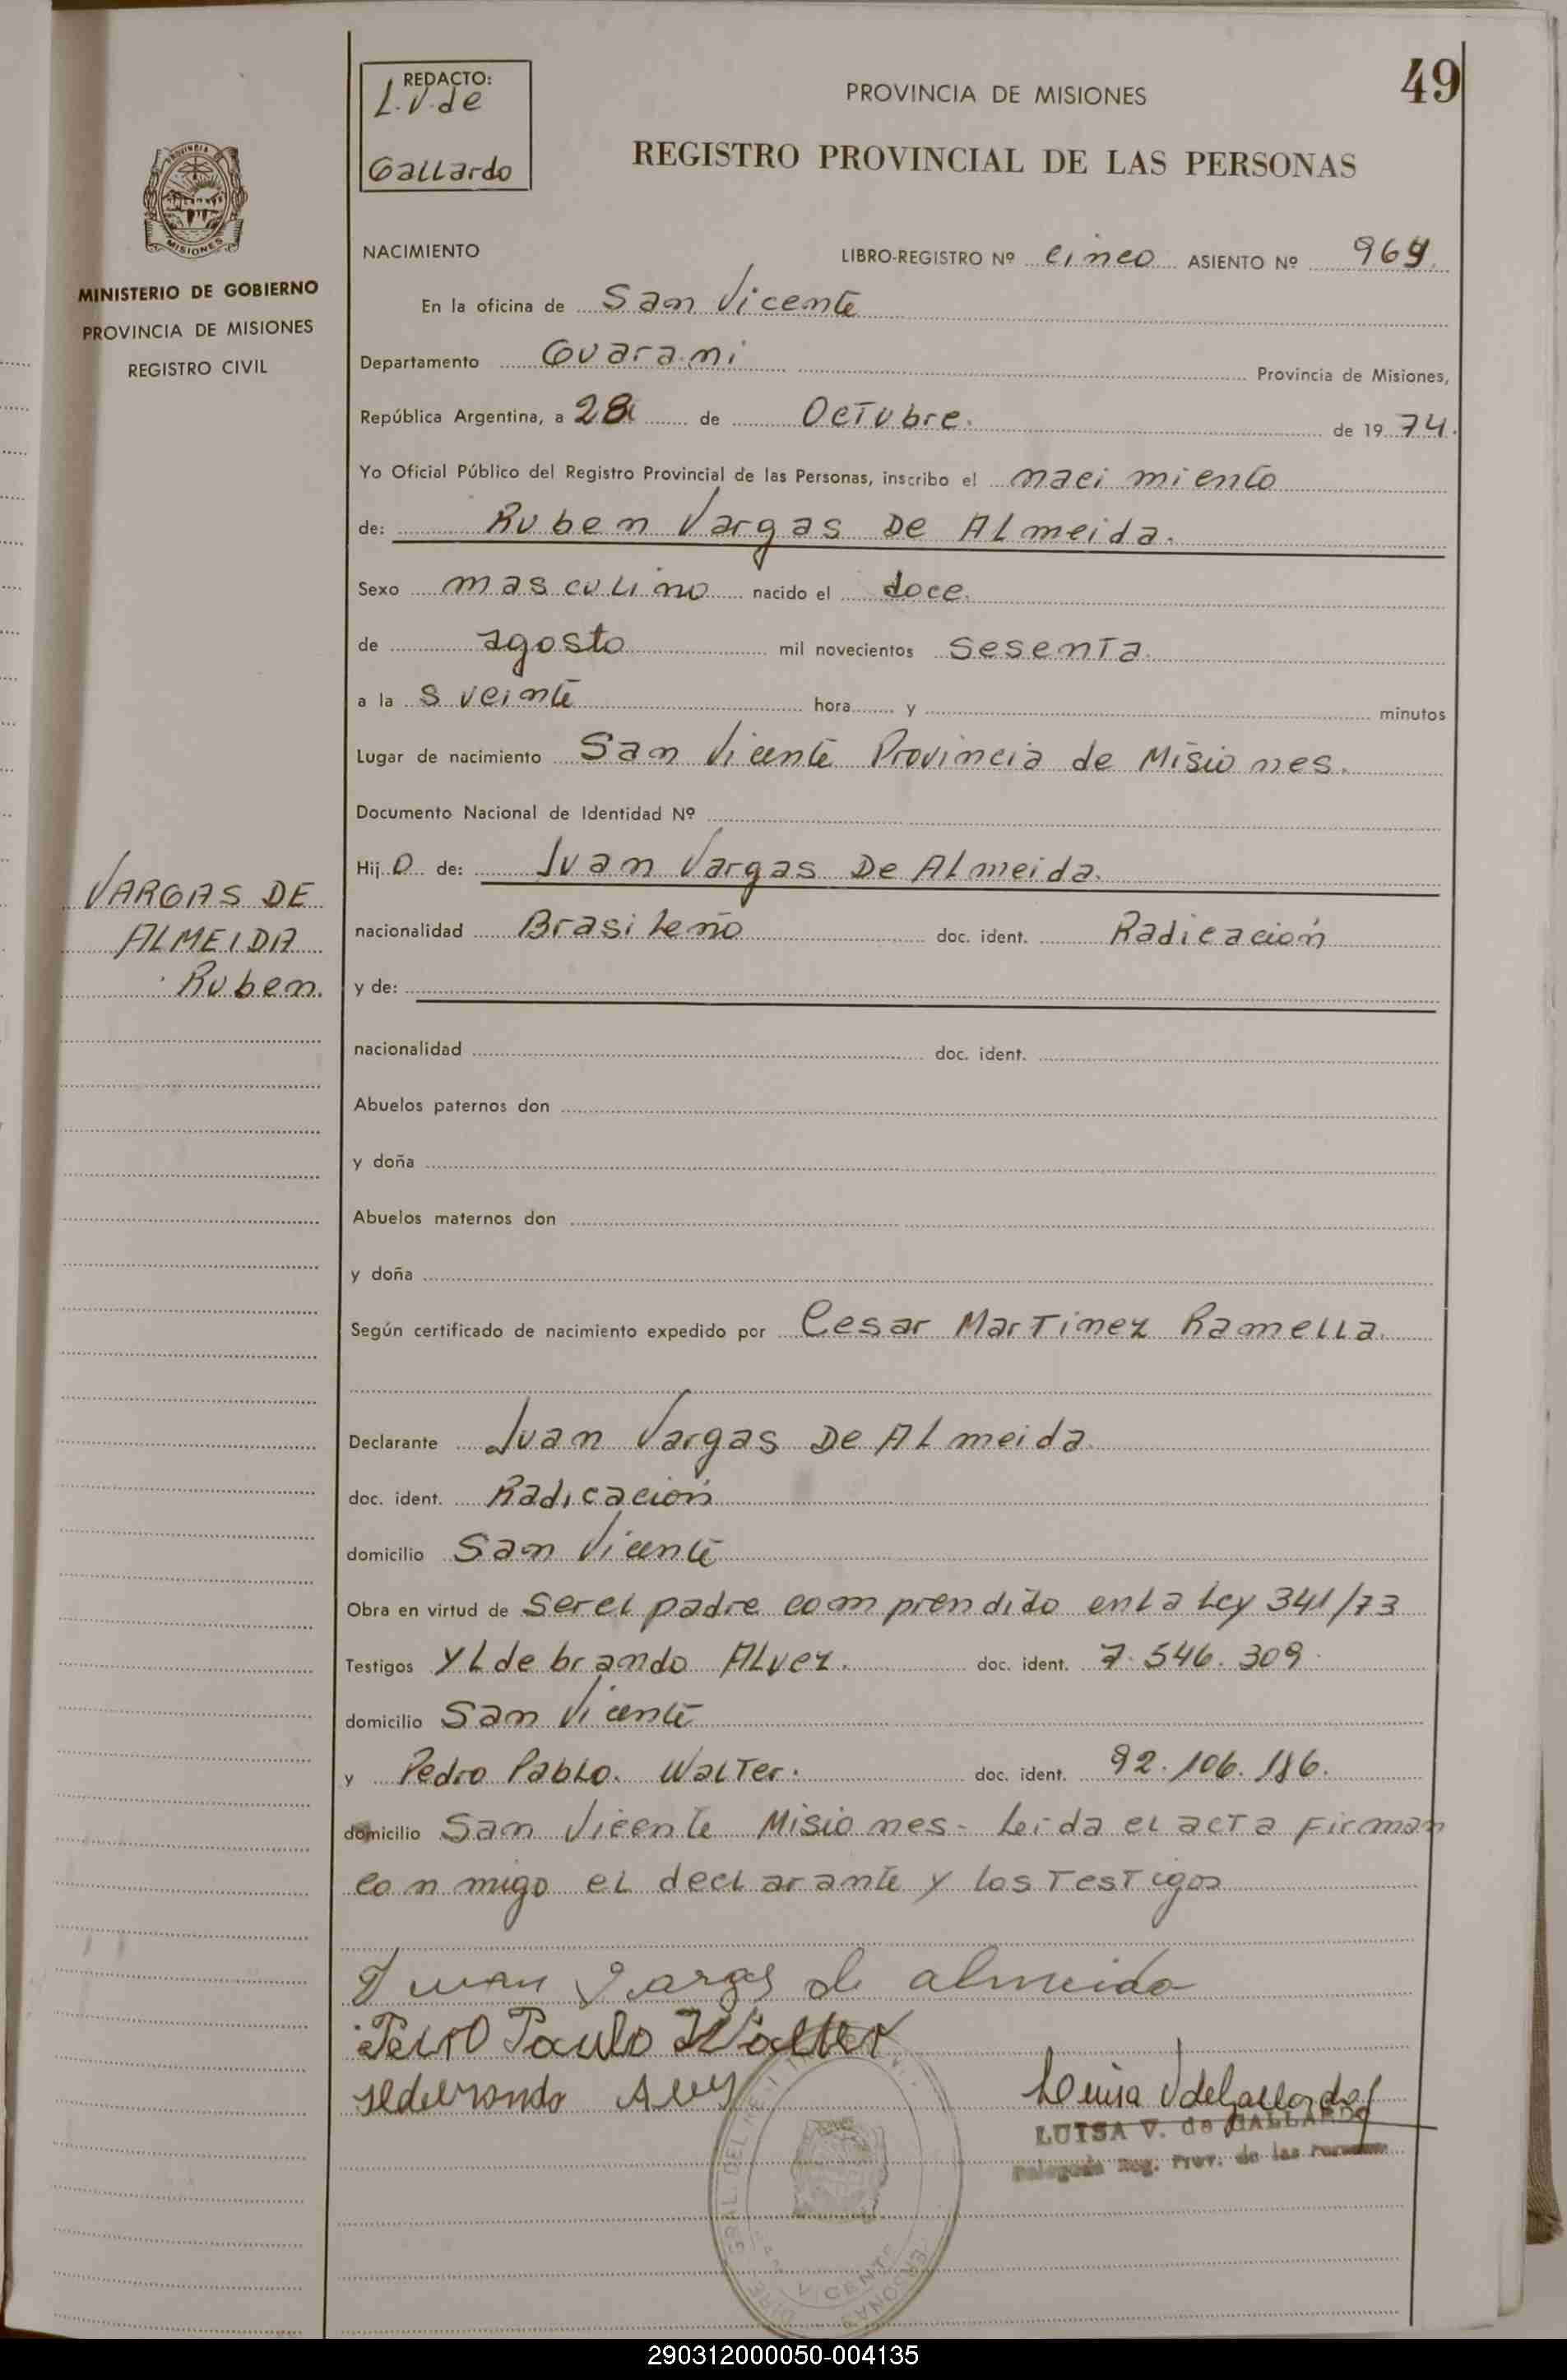 49
REDACTO:
L. V. de
Gallardo
PROVINCIA DE MISIONES
REGISTRO PROVINCIAL DE LAS PERSONAS
MINISTERIO DE GOBIERNO
PROVINCIA DE MISIONES
REGISTRO CIVIL
NACIMIENTO LIBRO-REGISTRO Nº cinco ASIENTO Nº 969
En la oficina de San Vicente
Departamento Guarani Provincia de Misiones,
República Argentina, a 28 de Octubre. de 19 74.
Yo Oficial Público del Registro Provincial de las Personas, inscribo el nacimiento
de: Ruben Vargas De Almeida.
Sexo masculino nacido el doce.
de agosto mil novecientos sesenta.
a la s veinte hora y minutos
Lugar de nacimiento San Vicente Provincia de Misiones.
Documento Nacional de Identidad Nº
Hij o de: Juan Vargas De Almeida.
VARGAS DE
ALMEIDA
Ruben.
nacionalidad Brasileño doc. ident. Radicación
y de:
nacionalidad doc. ident.
Abuelos paternos don
y doña
Abuelos maternos don
y doña
Según certificado de nacimiento expedido por Cesar Martinez Ramella.
Declarante Juan Vargas De Almeida.
doc. ident. Radicación
domicilio San Vicente
Obra en virtud de ser el padre comprendido en la Ley 341/73
Testigos Yldebrando Alvez. doc. ident. 7.546.309.
domicilio San Vicente
y Pedro Pablo. Walter. doc. ident. 92.106.186.
domicilio San Vicente Misiones- Leida el acta firman
conmigo el declarante y los testigos
Juan Vargas de almeida
Pedro Paulo Walter
Luisa V de Gallardo
LUISA V. de GALLARDO
Reg. Prov. de las
VICENTE
290312000050-004135